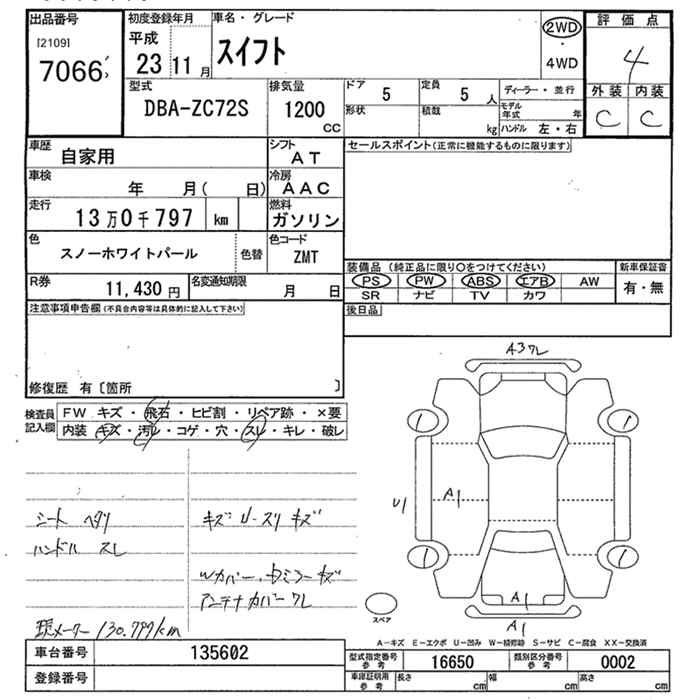 出品番号 初度登録年月 車名・グレード 2WD 評価点
[2109] 平成 スイフト ・ 4
7066 23 11月 4WD
型式 排気量 ドア 5 定員 5人 ディーラー・並行 外装 内装
DBA-ZC72S 1200 cc 形状 積載 kg モデル年式 年 C C
ハンドル 左・右
車歴 自家用 シフト AT セールスポイント(正常に機能するものに限ります)
車検 年 月( 日) 冷房 AAC
走行 13万0千797 km 燃料 ガソリン
色 スノーホワイトパール 色替 色コード ZMT
装備品(純正品に限り○をつけてください) 新車保証書
R券 11,430円 名変通知期限 月 日 PS PW ABS エアB AW 有・無
SR ナビ TV カワ
注意事項申告欄(不具合内容等は具体的に記入して下さい) 後日品
A3ワレ
修復歴 有〔箇所 〕
検査員記入欄 FW キズ・飛石・ヒビ割・リペア跡・×要
内装 キズ・汚レ・コゲ・穴・スレ・キレ・破レ
シート ヘタリ キズ U・スリキズ
ハンドル スレ
アンテナカバーワレ
現メーター 130.797km
U1 A1
A1
A1
スペア
A-キズ E-エクボ U-凹み W-補修跡 S-サビ C-腐食 XX-交換済
車台番号 135602 型式指定番号参考 16650 類別区分番号参考 0002
登録番号 車庫証明用参考 長さ cm 幅 cm 高さ cm